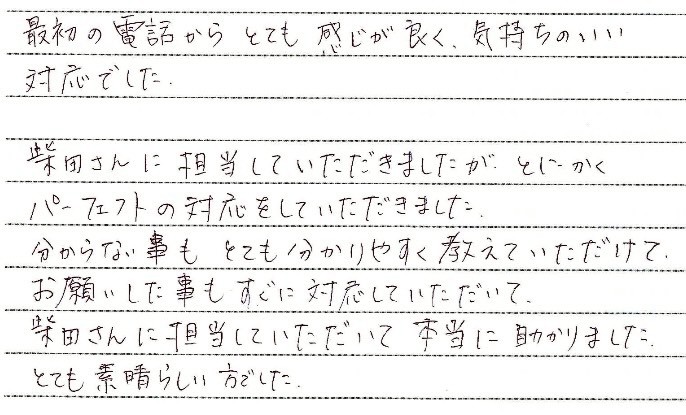 最初の電話からとても感じが良く、気持ちのいい
対応でした.
柴田さんに担当していただきましたが、とにかく
パーフェクトの対応をしていただきました.
分からない事もとても分かりやすく教えていただけて.
お願いした事もすぐに対応していただいて.
柴田さんに担当していただいて本当に助かりました.
とても素晴らしい方でした.